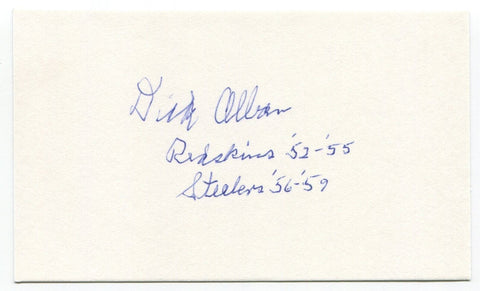 Dick Alban
Redskins '52-'55
Steelers '56-'59